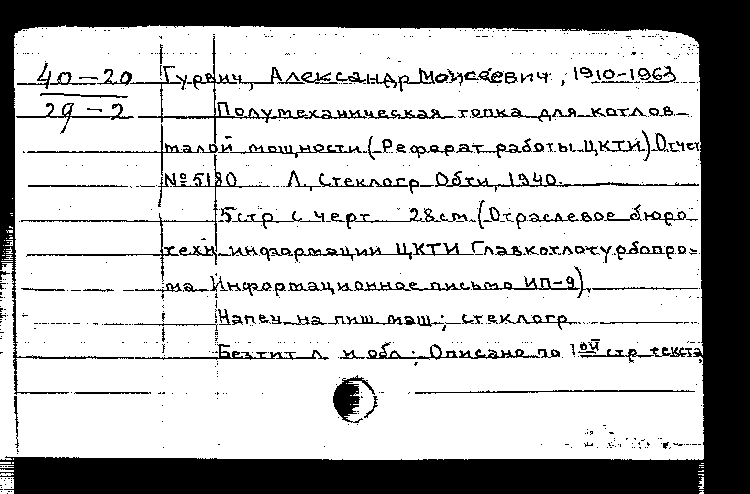 40-20 Гурвич, Александр Моисеевич, 1910-1963
29-2 Полумеханическая топка для котлов
малой мощности (Реферат работы ЦКТИ) Отчет
№5180 Л., Стеклогр Обти, 1940.
5стр с черт 28см. (Отраслевое бюро
техн информации ЦКТИ Главкотлотурбопро-
ма Информационное письмо ИП-9).
Напеч на пиш маш; стеклогр
Без тит л и обл; Описано по 1ой стр текста